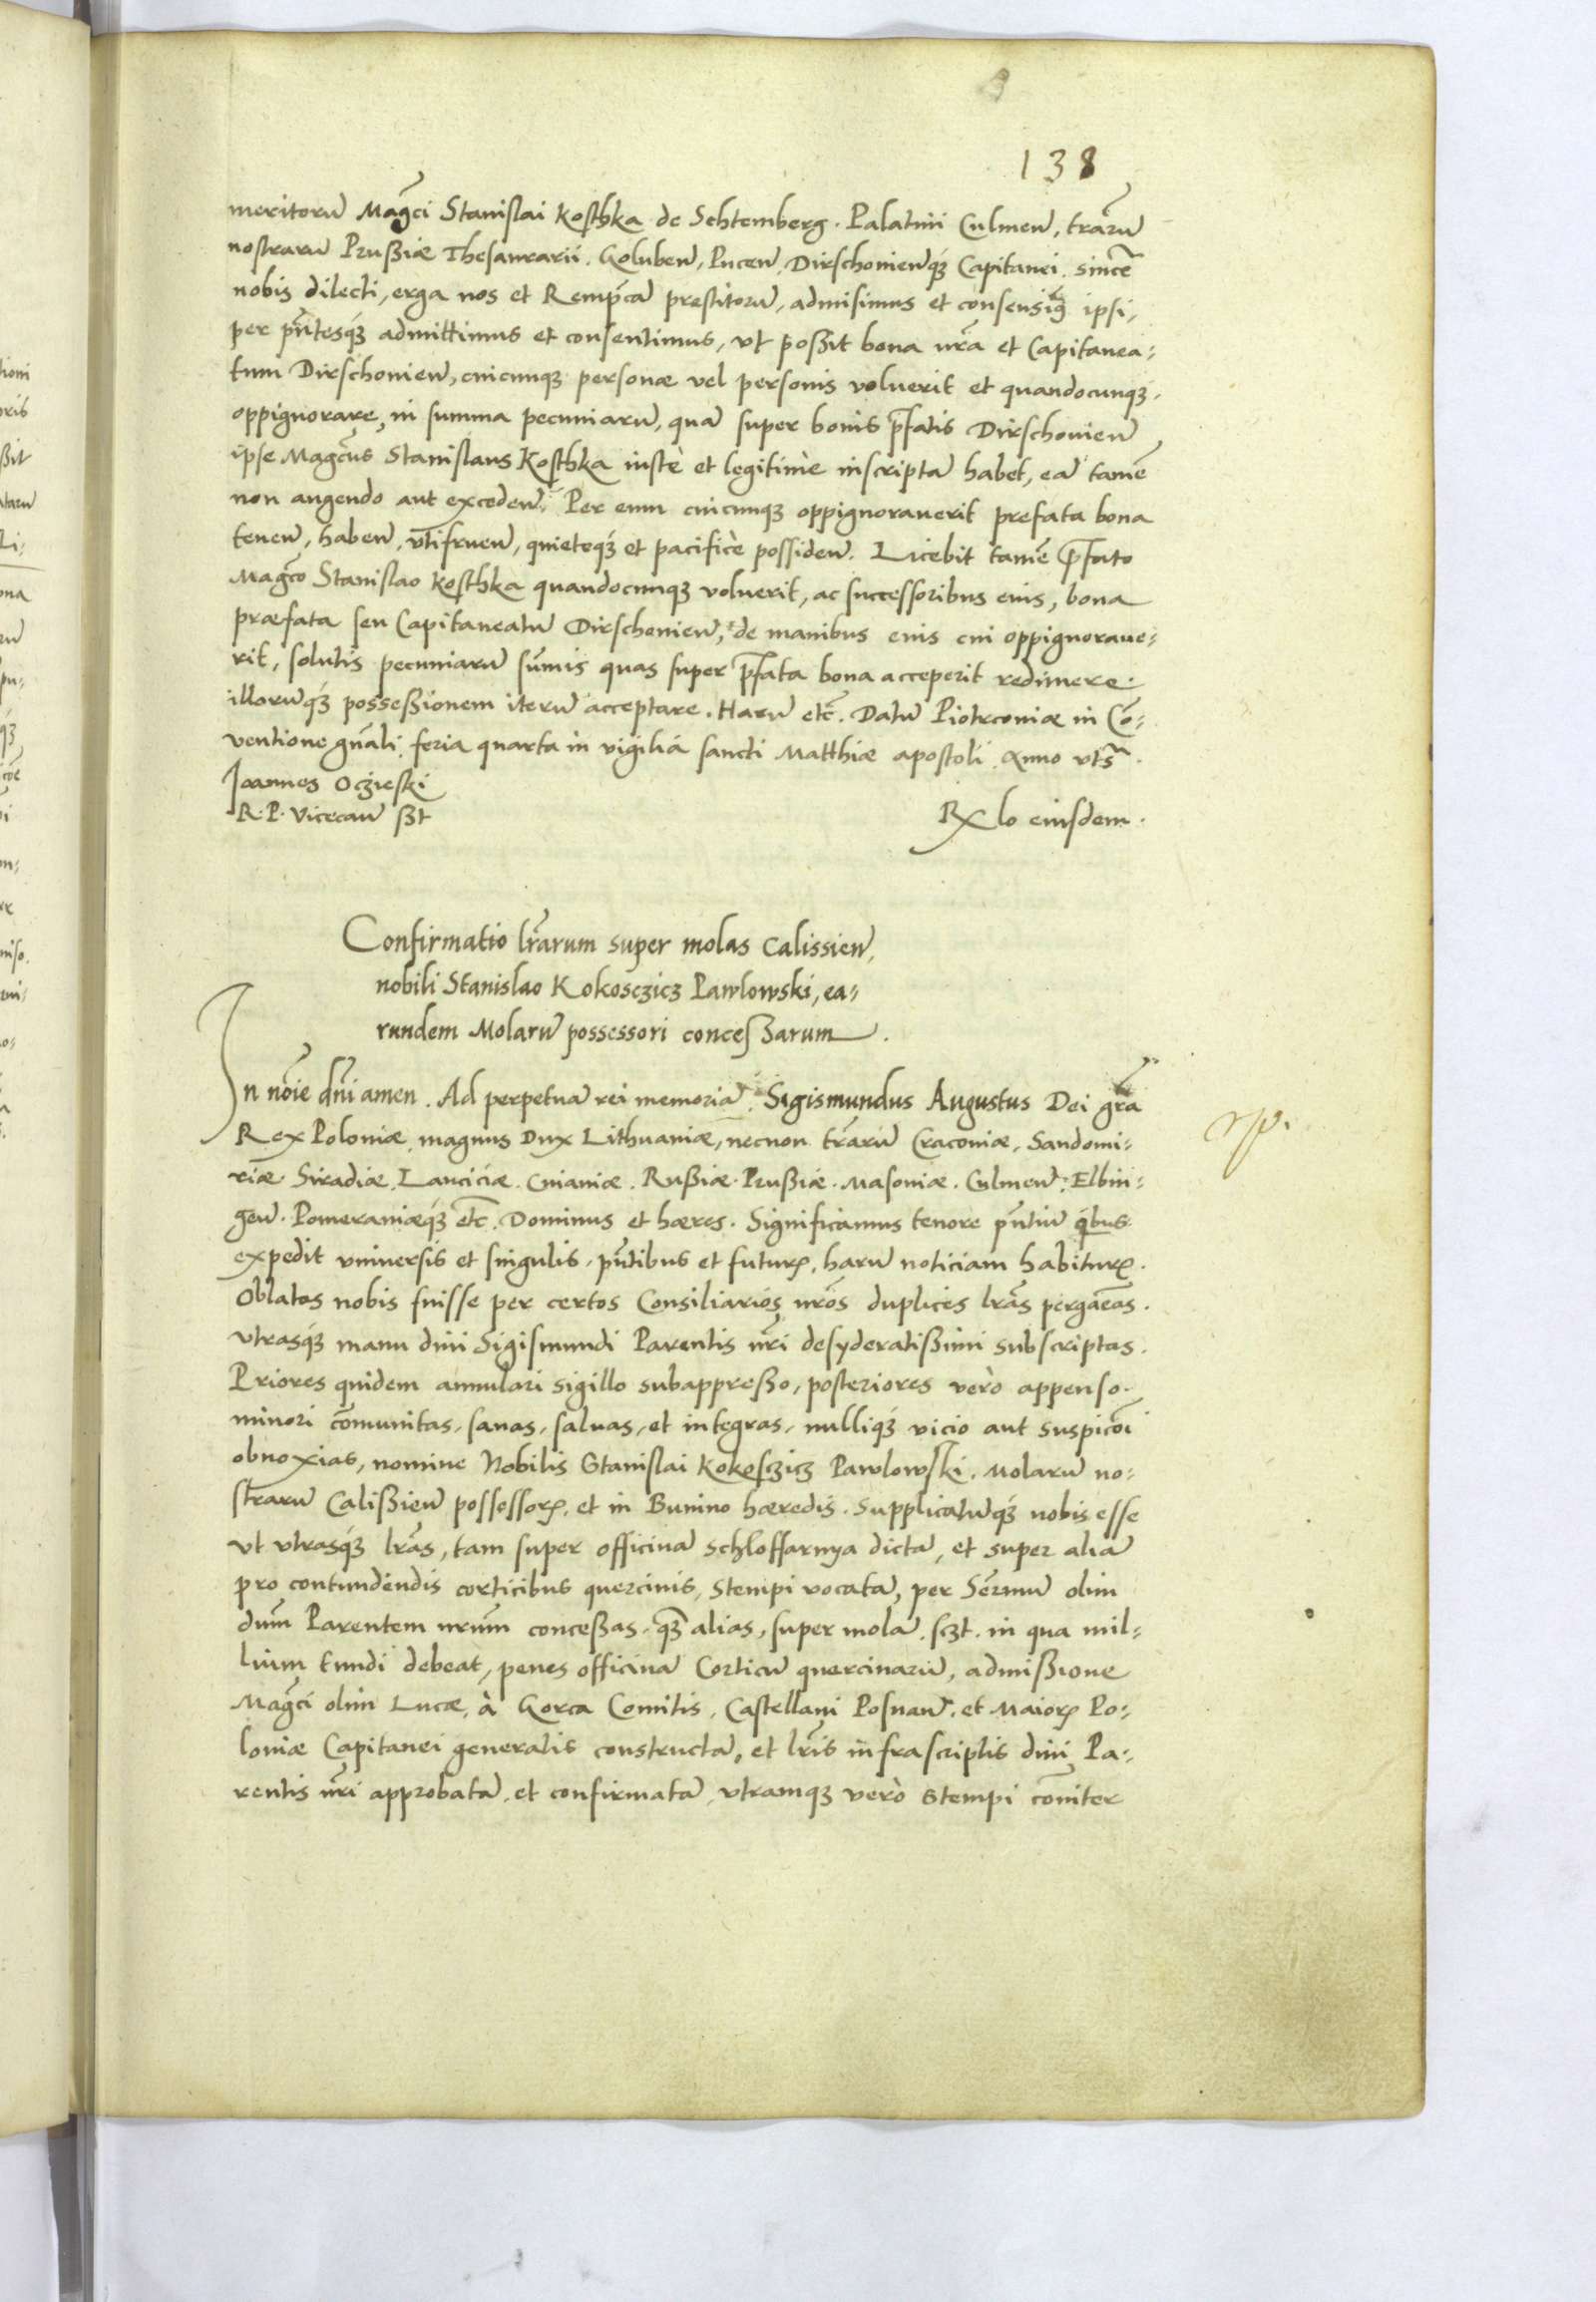 138
meritorũ Magc̃i Stanislai Kosthka de Sehtemberg. Palatini Culmen̄, trarũ
nostrarũ Prußiæ Thesaurarii. Goluben̄, Pucen̄, Dirschonien̄q₃ Capitanei. sincẽ
nobis dilecti, erga nos et Remp̃cã prestitorũ, admisimus et consensim9 ipsi,
per pñtesq₃ admittimus et consentimus, vt poßit bona nrã et Capitanea-
tum Dirschonien̄, cuicunq₃ personæ vel personis voluerit et quandocunq₃.
oppignorare, in summa pecuniarũ, quã super bonis p̃fatis Dirschonien̄
ipse Magc̃us Stanislaus Kosthka iustè et legitimè inscriptã habet, eã tamẽ
non augendo aut exceden̄. Per eum cuicunq₃ oppignorauerit prefata bona
tenen̄, haben̄, vtifruen̄, quieteq₃ et pacificè possiden̄. Licebit tamẽ p̃fato
Magc̃o Stanislao Kosthka quandocunq₃ voluerit, ac successoribus eius, bona
præfata seu Capitaneatũ Dirschonien̄, de manibus eius cui oppignoraue-
rit, solutis pecuniarũ sum̃is quas super p̃fata bona acceperit redimere.
illorũq₃ possessionem iterũ acceptare. Harũ etc̃. Datũ Piotrconiæ in Cõ-
uentione gnãli feria quarta in vigilia sancti Matthiæ apostoli. Anno vts̃.
Joannes Oczieski
R. P. Vicecan̄ sßt
Relo eiusdem.
Confirmatio lr̃arum super molas Calissien̄,
nobili Stanislao Kokosczicz Pawlowski, ea-
rundem Molarũ possessori conceßarum.
In nõie dñi amen. Ad perpetuã rei memoriã. Sigismundus Augustus Dei grã
Rex Poloniæ, magnus Dux Lithuaniæ, necnon trãrũ Craconiæ, Sandomi-
riæ. Siradiæ. Lanciciæ. Cuiauiæ. Rußiæ. Prußiæ. Masoniæ. Culmen̄. Elbin-
gen̄. Pomeraniæq₃ etc̃. Dominus et hæres. Significamus tenore pñtiũ qbus
expedit vniuersis et singulis, pñtibus et futuꝝ, harũ noticiam habituꝝ.
Oblatas nobis fuisse per certos Consiliarios nrõs duplices lrãs pergãeas.
vtrasq₃ manu diui Sigismundi Parentis nrĩ desyderatißimi subscriptas.
Priores quidem annulari sigillo subappreßo, posteriores verò appenso
minori cõmunitas, sanas, saluas, et integras, nulliq₃ vicio aut suspicõi
obnoxias, nomine Nobilis Stanislai Kokosczicz Pawlowski. Molarũ no-
strarũ Calißien̄ possessoꝝ, et in Bunino hæredis. Supplicatũq₃ nobis esse
vt vtrasq₃ lrãs, tam super officinã schloffarnya dictã, et super aliã
pro contundendis corticibus quercinis, stempi vocatã, per Serm̃ũ olim
dum̃ Parentem nrũm conceßas. q₃ alias, super molã, sczt. in qua mil-
lium tundi debeat, penes officinã Corticũ quercinarũ, admißione
Magc̃i olim Lucæ, à Gorca Comitis, Castellani Posnan̄, et Maioꝝ Po-
loniæ Capitanei generalis constructã, et lrĩs infrascriptis diui Pa-
rentis nrĩ approbatã, et confirmatã, vtramq₃ verò stempi cõmiter